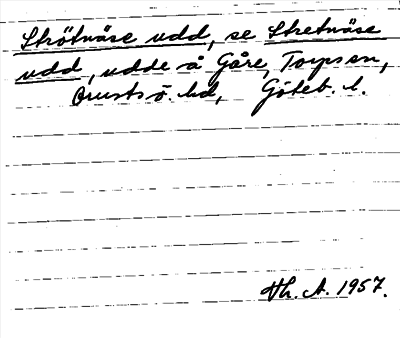 Strötnäse udd, se Stretnäse
udd, udde å Gåre, Torps sn,
Orusts ö. hd, Göteb. l.
Hh. A. 1957.